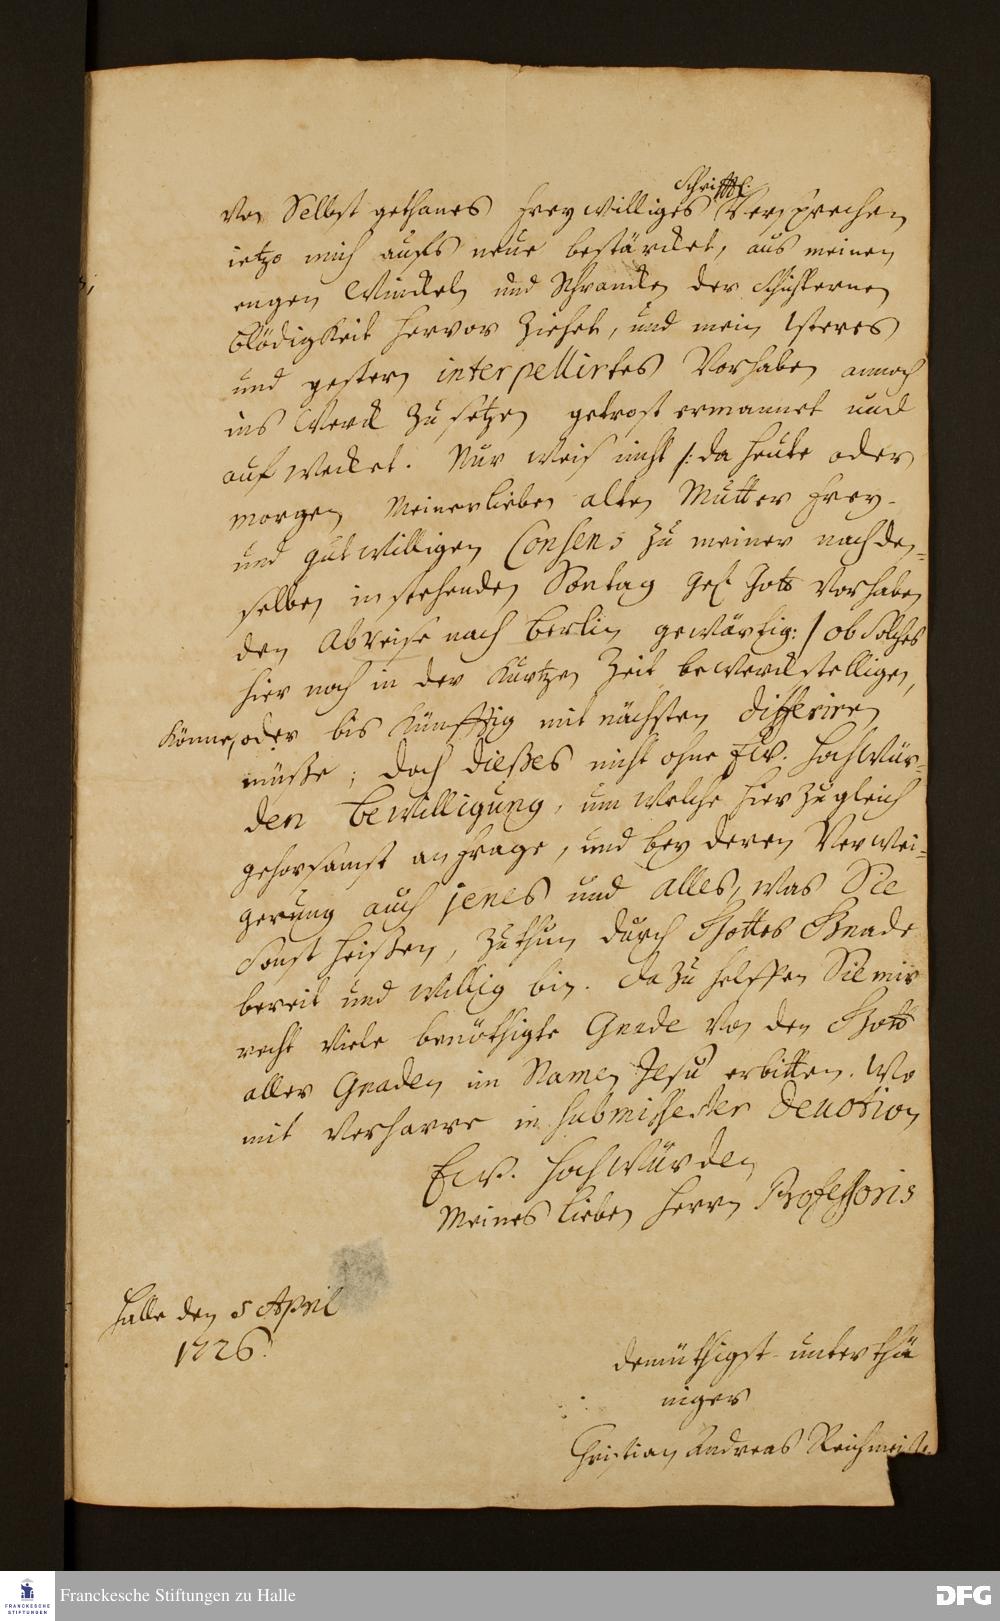 von Selbst gethanes freywilliges schrifftl. Versprechen
ietzo mich aufs neue bestärcket, aus meinen
engen Winckel und Schrancken der schüchternen
blödigkeit hervor ziehet, und mein öfteres
und gestern interpellirtes Vorhaben annoch
ins Werck zu setzen getrost ermannet und
aufwecket. Nur weiß nicht /: da heute oder
morgen Meiner lieben alten Mutter frey-
und gutwilligen Consens zu meiner nach den-
selben instehenden Sontag gel. Gott vorhaben
den Abreise nach Berlin gewärtig: / ob solches
hier noch in der kurtzen Zeit bewerckstelligen,
könne, oder bis künfftig mit nächsten differiren
müße; doch dießes nicht ohne Ew. Hochwür-
den Bewilligung, um welche hier zugleich
gehorsamst anfrage, und bey deren Verwei-
gerung auch jenes und alles, was Sie
sonst heißen, zu thun durch Gottes Gnade
bereit und willig bin. Dazu helffen Sie mir
recht viele benöthigte Gnade von den Gott
aller Gnaden im Namen Jesu erbitten. Wo
mit verharre in submissester Devotion
Ew. Hochwürden
Meines lieben Herrn Professoris
Halle den 5 April
1726.
demüthigst-unterthä
niger
Christian Andreas Reichmeister
Franckesche Stiftungen zu Halle
FRANCKESCHE
STIFTUNGEN
DFG